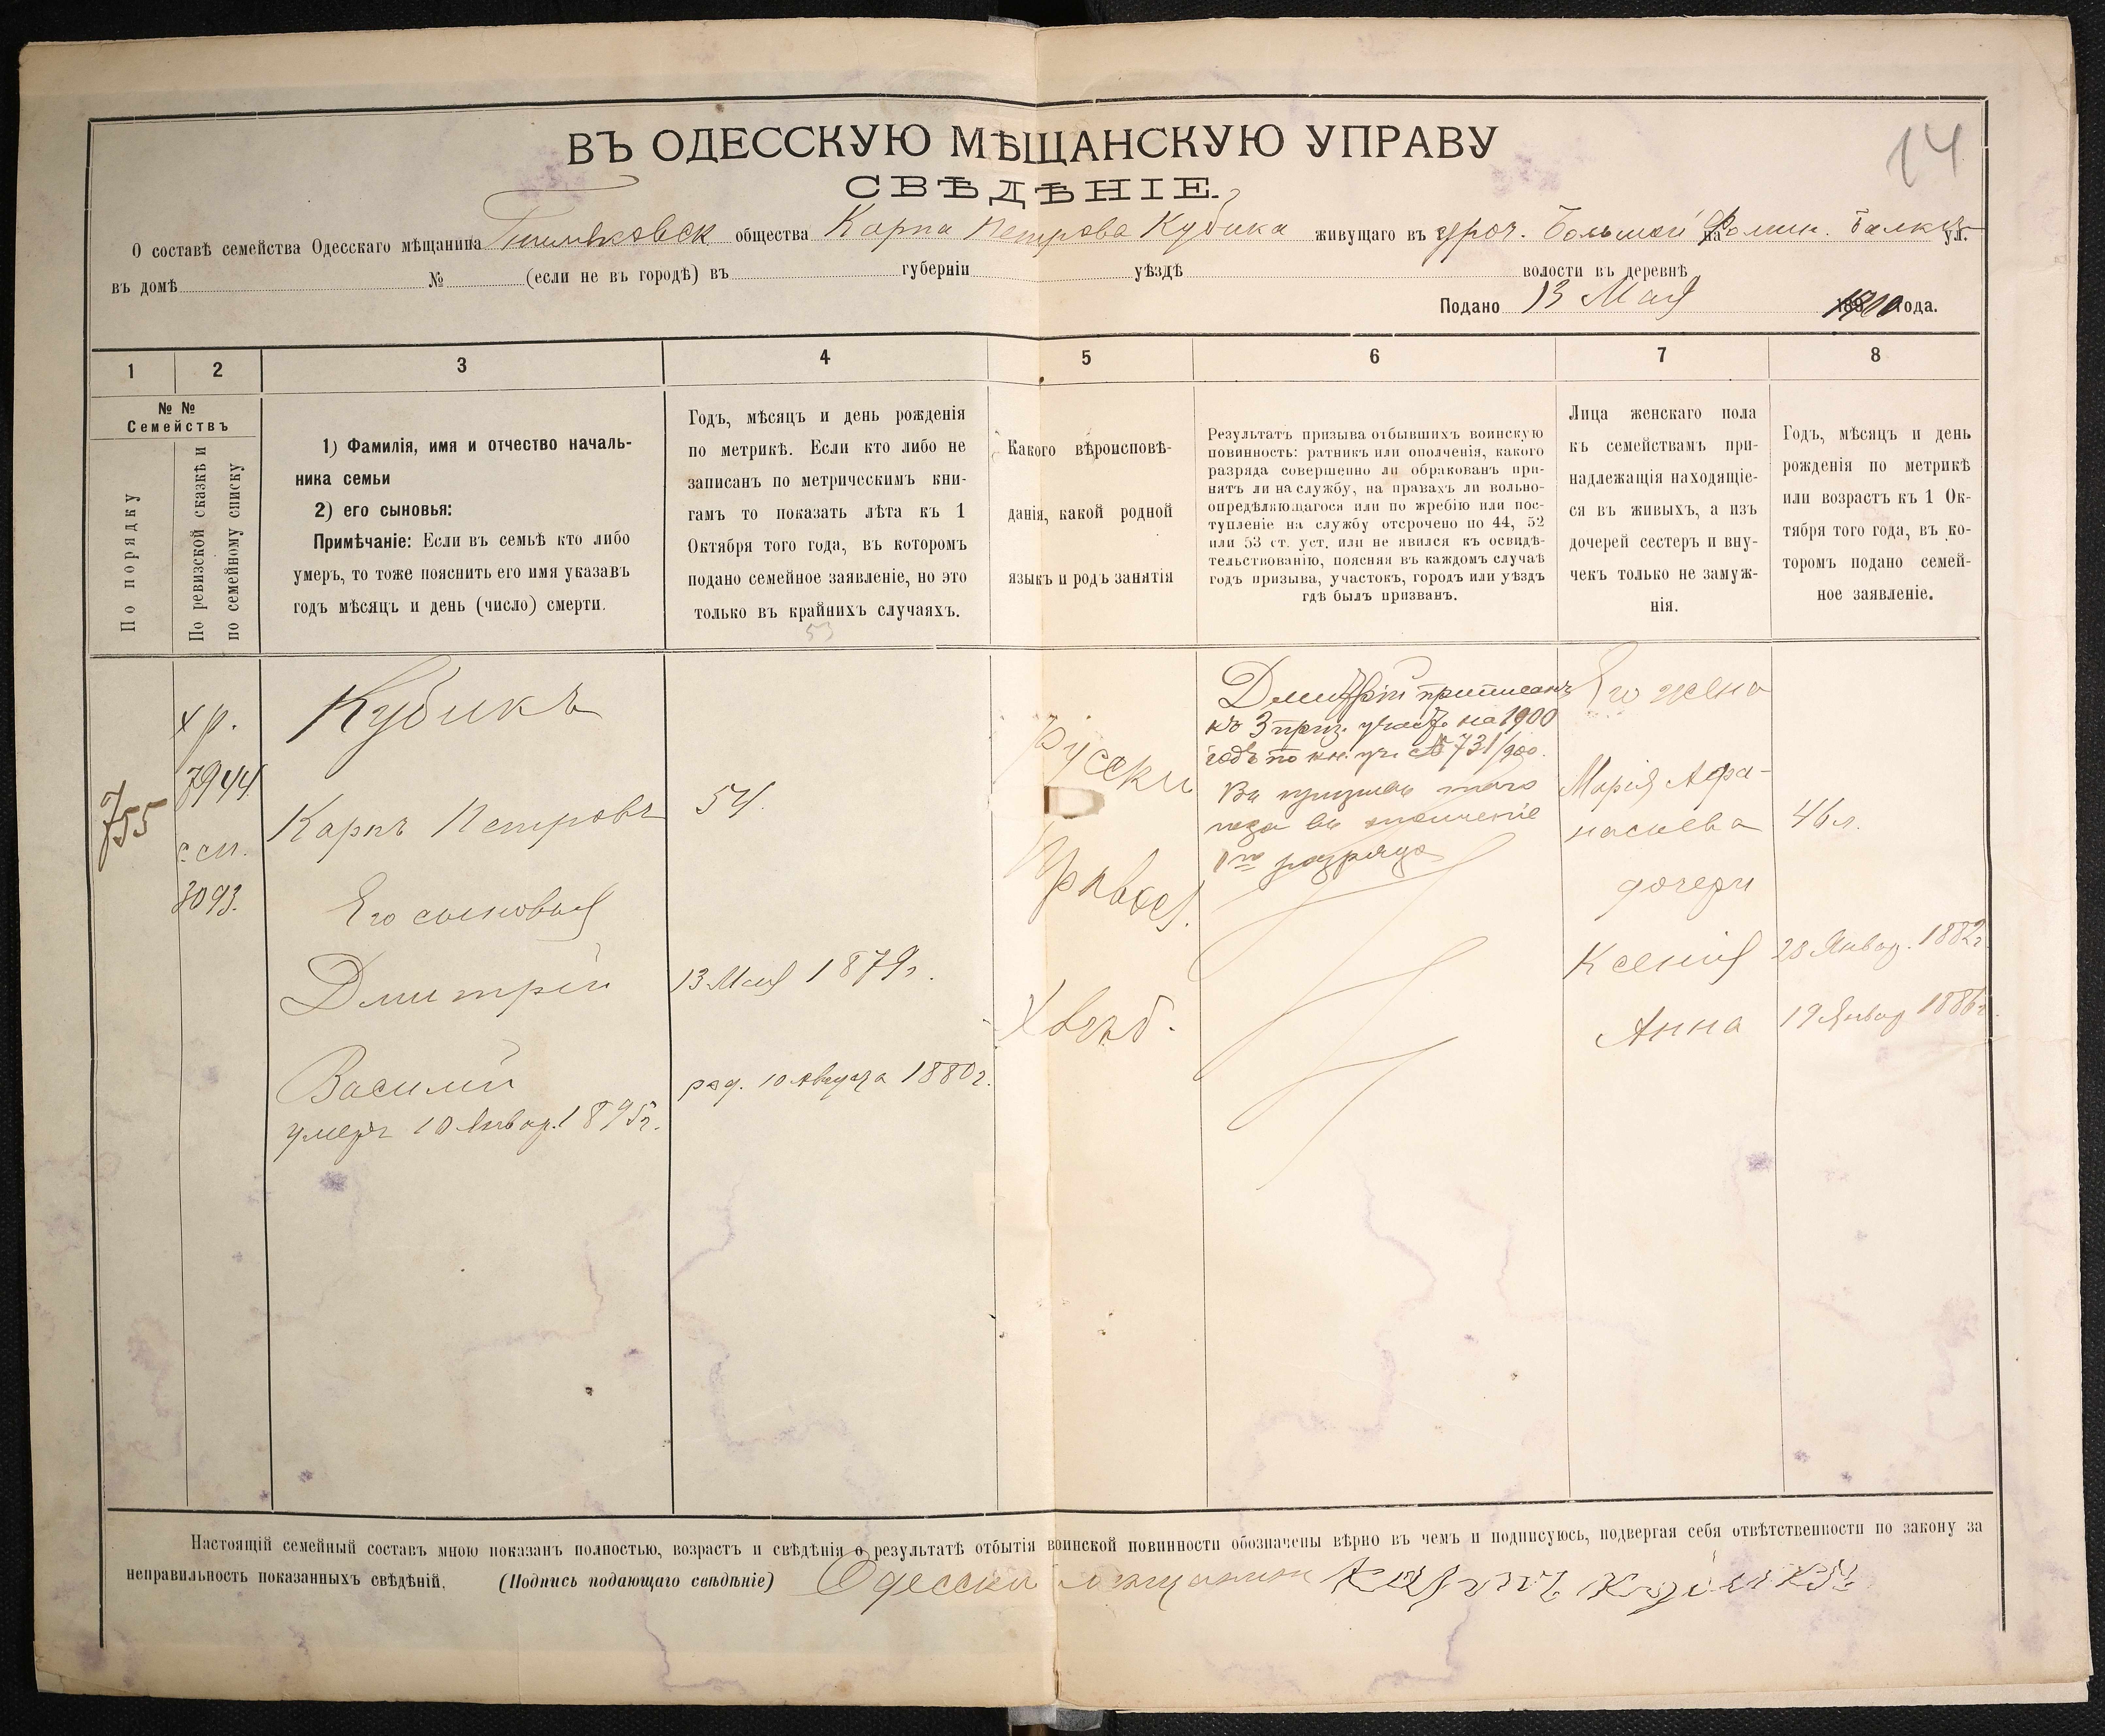 14
ВЪ ОДЕССКУЮ МѢЩАНСКУЮ УПРАВУ
СВѢДѢНІЕ.
О составѣ семейства Одесскаго мѣщанина общества Карпа Петрова Кубика живущаго въ уроч. Большой Фомин. балкѣ на ул.
въ домѣ № (если не въ городѣ) въ губерніи уѣздѣ волости въ деревнѣ
Подано 13 Мая 1900 года.
1 2 3 4 5 6 7 8
№ №
Семействъ
По порядку
По ревизской сказкѣ и
по семейному списку
1) Фамилія, имя и отчество началь-
ника семьи
2) его сыновья:
Примѣчаніе: Если въ семьѣ кто либо
умеръ, то тоже пояснить его имя указавъ
годъ мѣсяцъ и день (число) смерти.
Годъ, мѣсяцъ и день рожденія
по метрикѣ. Если кто либо не
записанъ по метрическимъ кни-
гамъ то показать лѣта къ 1
Октября того года, въ которомъ
подано семейное заявленіе, но это
только въ крайнихъ случаяхъ.
53
Какого вѣроисповѣ-
данія, какой родной
языкъ и родъ занятія
Результатъ призыва отбывшихъ воинскую
повинность: ратникъ или ополченія, какого
разряда совершенно ли обракованъ при-
нятъ ли на службу, на правахъ ли вольно-
опредѣляющагося или по жребію или пос-
тупленіе на службу отсрочено по 44, 52
или 53 ст. уст. или не явился къ освидѣ-
тельствованію, поясняя въ каждомъ случаѣ
годъ призыва, участокъ, городъ или уѣздъ
гдѣ былъ призванъ.
Лица женскаго пола
къ семействамъ при-
надлежащія находящіе-
ся въ живыхъ, а изъ
дочерей сестеръ и вну-
чекъ только не замуж-
нія.
Годъ, мѣсяцъ и день
рожденія по метрикѣ
или возрастъ къ 1 Ок-
тября того года, въ ко-
торомъ подано семей-
ное заявленіе.
755
7944
3093.
Кубикъ
Карпъ Петровъ
54.
Его сыновья
Дмитрій
13 Мая 1879г.
Василій
род. 10 Августа 1880г.
умеръ 10 Январ. 1895г.
Русски
Правосл.
Хлѣб.
Дмитрій приписанъ
къ 3 приз. участ. на 1900
годъ по кн. уч. № 731/900.
Въ призывъ того
года въ ополченіе
1го разряда
Его жена
Марія Афа-
насьева
46 л.
дочери
Ксенія
28 Январ. 1882г.
Анна
19 Январ 1886г.
Настоящій семейный составъ мною показанъ полностью, возрастъ и свѣдѣнія о результатѣ отбытія воинской повинности обозначены вѣрно въ чемъ и подписуюсь, подвергая себя отвѣтственности по закону за
неправильность показанныхъ свѣдѣній. (Подпись подающаго свѣдѣніе) Одесски мещанин Карпъ Кубикъ